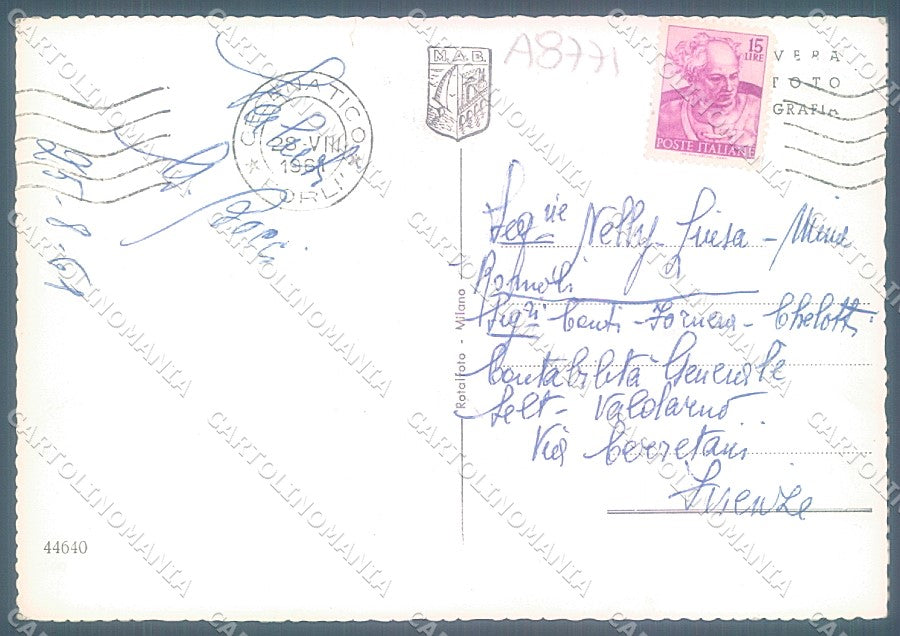 A8771
M.A.B.
15
LIRE
POSTE ITALIANE
VERA
FOTO
GRAFIA
CESENATICO
28-VIII
196
FORLI'
Saluti
25-8-61
Sig.rie Nelly - Luisa - Mina
Romoli
Sig.ri Conti - Fornera - Chelotti
Contabilità Generale
Selt - Valdarno
Via Cerretani
Firenze
Rotalfoto - Milano
44640
CARTOLINOMANIA